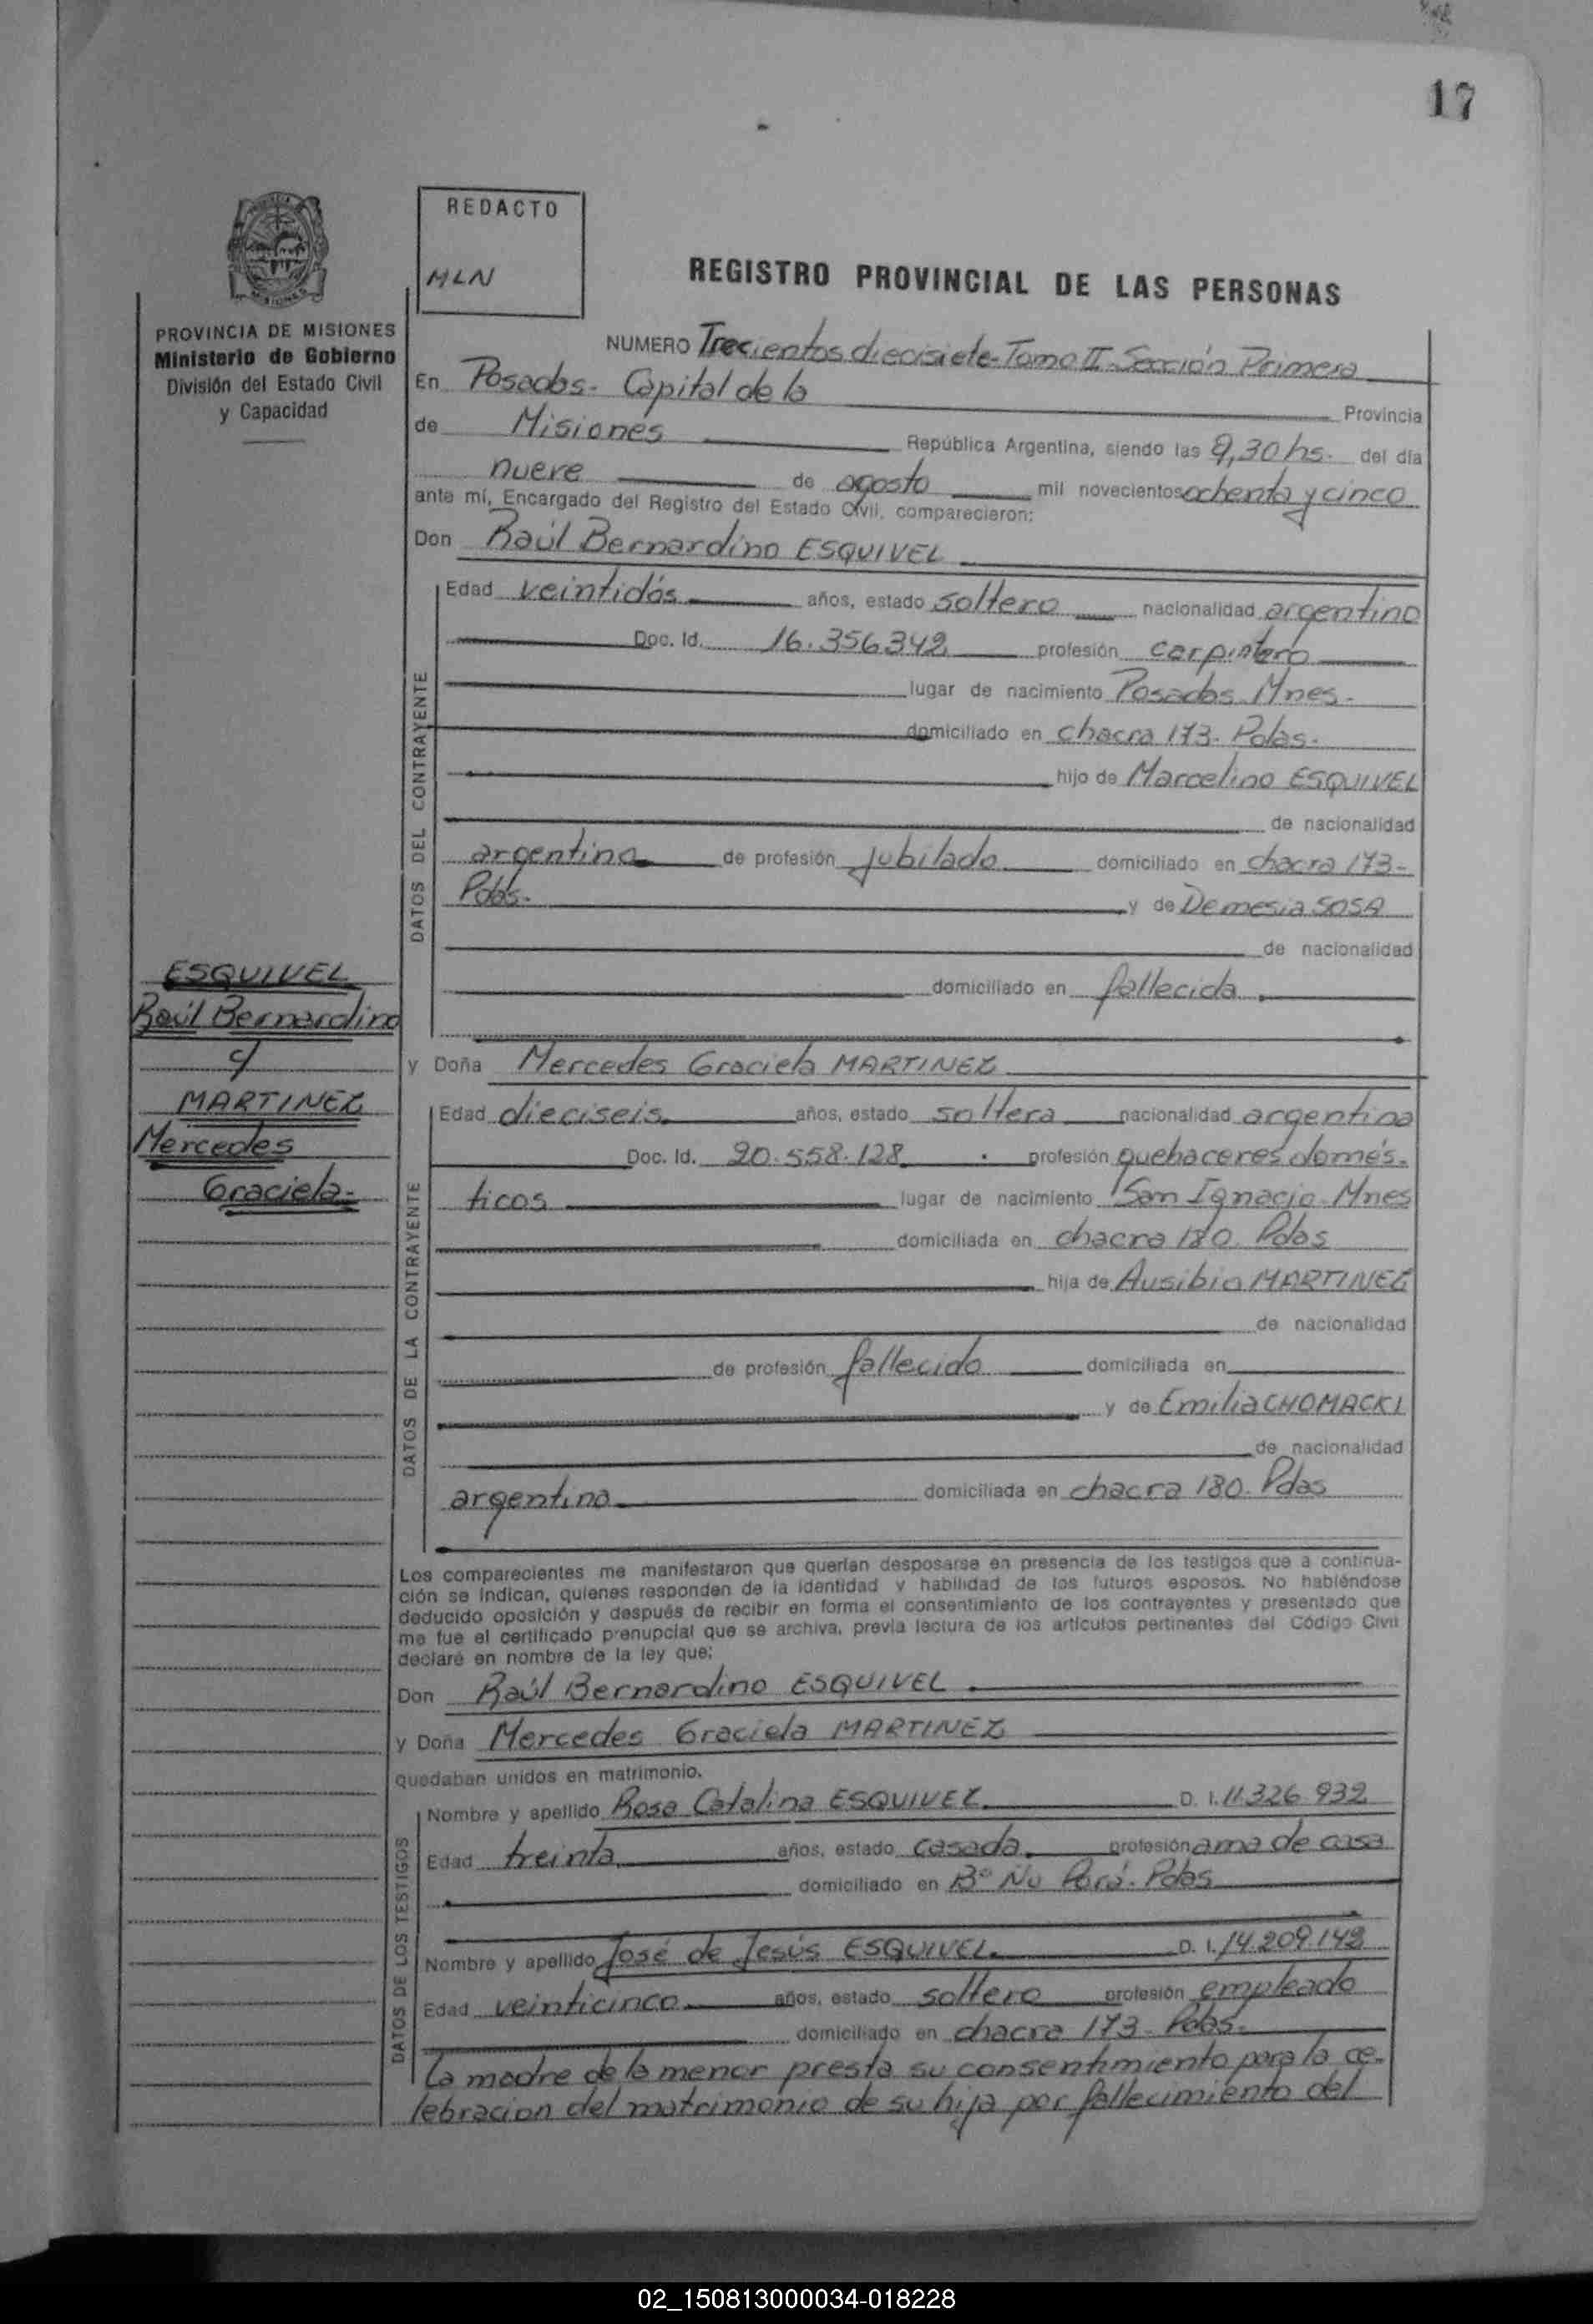 17
REDACTO
MLN
REGISTRO PROVINCIAL DE LAS PERSONAS
PROVINCIA DE MISIONES
Ministerio de Gobierno
División del Estado Civil
y Capacidad
NUMERO Trecientos diecisiete- Tomo II- Sección Primera
En Posadas- Capital de la Provincia
de Misiones República Argentina, siendo las 9,30 hs. del día
nueve de agosto mil novecientos ochenta y cinco
ante mí, Encargado del Registro del Estado Civil, comparecieron:
Don Raúl Bernardino ESQUIVEL
DATOS DEL CONTRAYENTE
Edad veintidós años, estado soltero nacionalidad argentino
Doc. Id. 16.356.342 profesión carpintero
lugar de nacimiento Posadas Mnes-
domiciliado en chacra 173- Pdas-
hijo de Marcelino ESQUIVEL
de nacionalidad
argentina de profesión jubilado domiciliado en chacra 173-
Pdas- y de Demesia SOSA
de nacionalidad
domiciliado en fallecida
ESQUIVEL
Raúl Bernardino
c/
MARTINEZ
Mercedes
Graciela-
y Doña Mercedes Graciela MARTINEZ
DATOS DE LA CONTRAYENTE
Edad dieciseis años, estado soltera nacionalidad argentina
Doc. Id. 20.558.128 profesión quehaceres domés-
ticos lugar de nacimiento San Ignacio- Mnes
domiciliada en chacra 180. Pdas
hija de Ausibio MARTINEZ
de nacionalidad
de profesión fallecido domiciliada en
y de Emilia CHOMACKI
de nacionalidad
argentina domiciliada en chacra 180. Pdas
Los comparecientes me manifestaron que querían desposarse en presencia de los testigos que a continua-
ción se indican, quienes responden de la identidad y habilidad de los futuros esposos. No habiéndose
deducido oposición y después de recibir en forma el consentimiento de los contrayentes y presentado que
me fue el certificado prenupcial que se archiva, previa lectura de los artículos pertinentes del Código Civil
declaré en nombre de la ley que:
Don Raúl Bernardino ESQUIVEL
y Doña Mercedes Graciela MARTINEZ
quedaban unidos en matrimonio.
DATOS DE LOS TESTIGOS
Nombre y apellido Rosa Catalina ESQUIVEL D. I. 11.326.932
Edad treinta años, estado casada profesión ama de casa
domiciliado en B° Ñu Porá- Pdas
Nombre y apellido José de Jesús ESQUIVEL D. I. 14.209.142
Edad veinticinco años, estado soltero profesión empleado
domiciliado en chacra 173- Pdas-
La madre de la menor presta su consentimiento para la ce-
lebracion del matrimonio de su hija por fallecimiento del
02_150813000034-018228